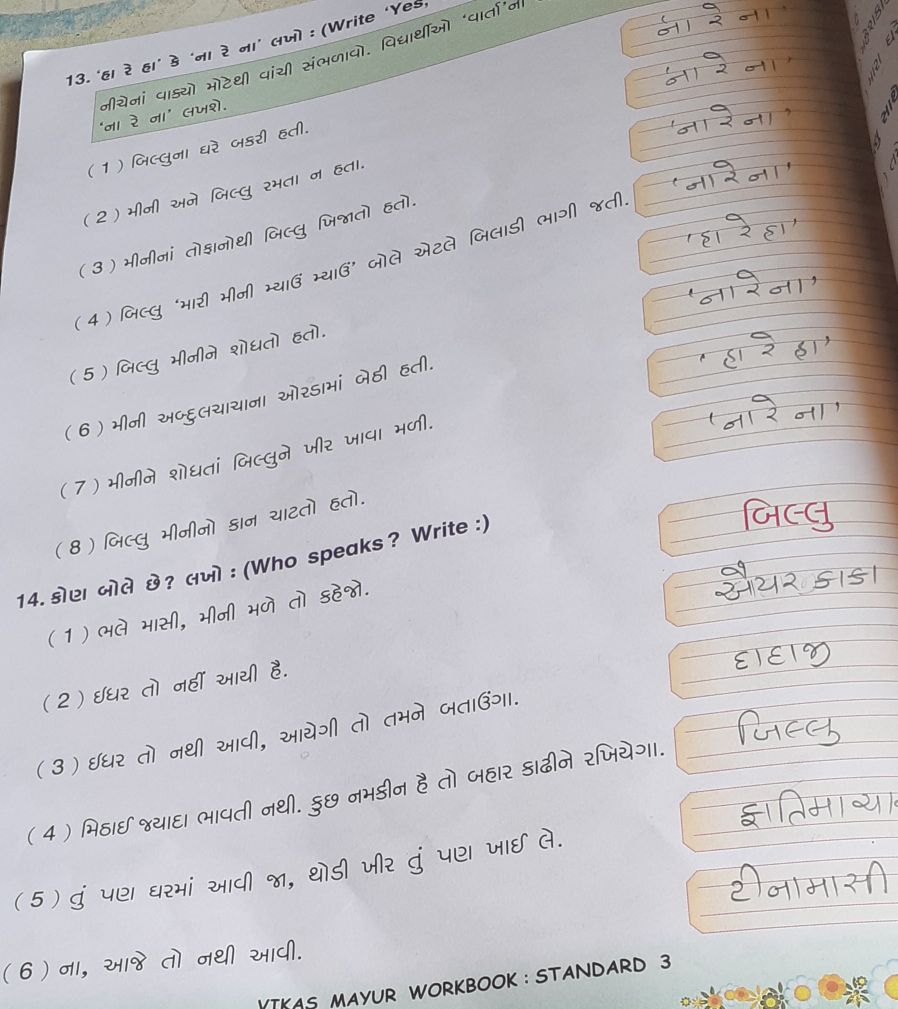 13. 'હા રે હા' કે 'ના રે ના' લખો : (Write 'Yes,
નીચેનાં વાક્યો મોટેથી વાંચી સંભળાવો. વિદ્યાર્થીઓ 'વાર્તા'ના
'ના રે ના' લખશે.
(1) બિલ્લુના ઘરે બકરી હતી. ના રે ના
(2) મીની અને બિલ્લુ રમતા ન હતા. 'ના રે ના'
(3) મીનીનાં તોફાનોથી બિલ્લુ ખિજાતો હતો. 'ના રે ના'
(4) બિલ્લુ 'મારી મીની મ્યાઉં મ્યાઉં' બોલે એટલે બિલાડી ભાગી જતી. 'ના રે ના'
(5) બિલ્લુ મીનીને શોધતો હતો. 'હા રે હા'
(6) મીની અબ્દુલચાચાના ઓરડામાં બેઠી હતી. 'ના રે ના'
(7) મીનીને શોધતાં બિલ્લુને ખીર ખાવા મળી. 'હા રે હા'
(8) બિલ્લુ મીનીનો કાન ચાટતો હતો. 'ના રે ના'
14. કોણ બોલે છે? લખો : (Who speaks? Write :)
(1) ભલે માસી, મીની મળે તો કહેજો. બિલ્લુ
(2) ઈધર તો નહીં આયી હૈ. ઐયર કાકા
(3) ઈધર તો નથી આવી, આયેગી તો તમને બતાઉંગા. દાદાજી
(4) મિઠાઈ જ્યાદા ભાવતી નથી. કુછ નમકીન હૈ તો બહાર કાઢીને રખિયેગા. બિલ્લુ
(5) તું પણ ઘરમાં આવી જા, થોડી ખીર તું પણ ખાઈ લે.
(6) ના, આજે તો નથી આવી. ટીનામાસી
VIKAS MAYUR WORKBOOK : STANDARD 3